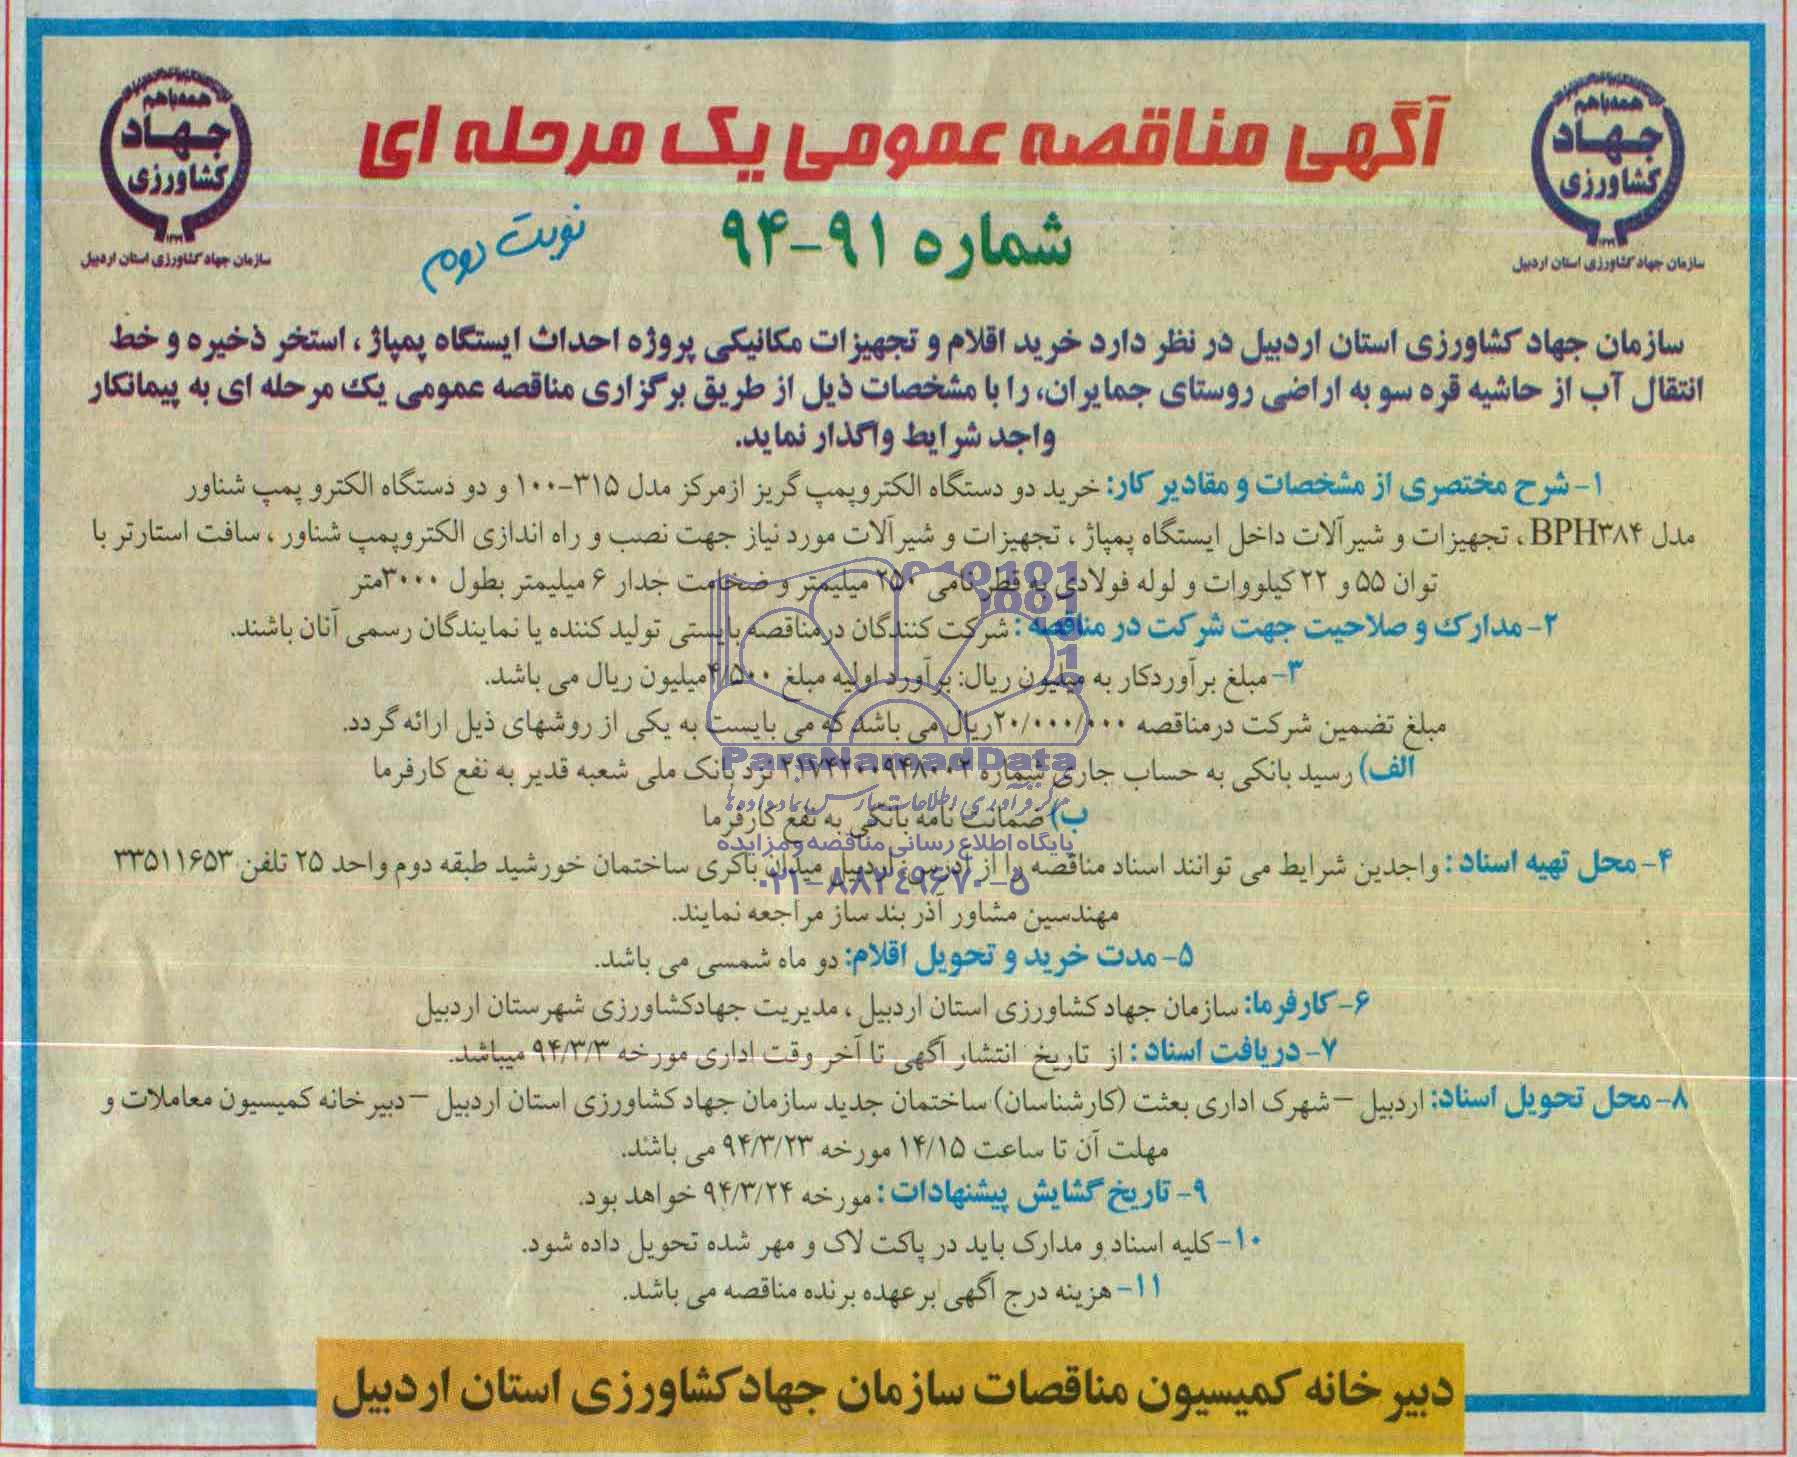 همه با هم
جهاد
کشاورزی
سازمان جهاد کشاورزی استان اردبیل
همه با هم
جهاد
کشاورزی
سازمان جهاد کشاورزی استان اردبیل
آگهی مناقصه عمومی یک مرحله ای
شماره ۹۱-۹۴
نوبت دوم
سازمان جهاد کشاورزی استان اردبیل در نظر دارد خرید اقلام و تجهیزات مکانیکی پروژه احداث ایستگاه پمپاژ ، استخر ذخیره و خط
انتقال آب از حاشیه قره سو به اراضی روستای جمایران، را با مشخصات ذیل از طریق برگزاری مناقصه عمومی یک مرحله ای به پیمانکار
واجد شرایط واگذار نماید.
۱- شرح مختصری از مشخصات و مقادیر کار: خرید دو دستگاه الکتروپمپ گریز ازمرکز مدل ۳۱۵-۱۰۰ و دو دستگاه الکترو پمپ شناور
مدل BPH۳۸۴ ، تجهیزات و شیرآلات داخل ایستگاه پمپاژ ، تجهیزات و شیرآلات مورد نیاز جهت نصب و راه اندازی الکتروپمپ شناور ، سافت استارتر با
توان ۵۵ و ۲۲ کیلووات و لوله فولادی به قطر نامی ۲۵۰ میلیمتر و ضخامت جدار ۶ میلیمتر بطول ۳۰۰۰متر
۲- مدارک و صلاحیت جهت شرکت در مناقصه : شرکت کنندگان درمناقصه بایستی تولید کننده یا نمایندگان رسمی آنان باشند.
۳- مبلغ برآوردکار به میلیون ریال: برآورد اولیه مبلغ ۴/۵۰۰میلیون ریال می باشد.
مبلغ تضمین شرکت درمناقصه ۲۰/۰۰۰/۰۰۰ریال می باشد که می بایست به یکی از روشهای ذیل ارائه گردد.
الف) رسید بانکی به حساب جاری شماره ۲۱۷۴۲۰۰۹۴۸۰۰۲ نزد بانک ملی شعبه قدیر به نفع کارفرما
ParsNamadData
مرکز فرآوری اطلاعات پارس نماد داده ها
ب) ضمانت نامه بانکی به نفع کارفرما
پایگاه اطلاع رسانی مناقصه و مزایده
۴- محل تهیه اسناد : واجدین شرایط می توانند اسناد مناقصه را از آدرس: اردبیل میدان باکری ساختمان خورشید طبقه دوم واحد ۲۵ تلفن ۳۳۵۱۱۶۵۳
۰۲۱-۸۸۳۴۹۶۷۰-۵
مهندسین مشاور آذر بند ساز مراجعه نمایند.
۵- مدت خرید و تحویل اقلام: دو ماه شمسی می باشد.
۶- کارفرما: سازمان جهاد کشاورزی استان اردبیل ، مدیریت جهادکشاورزی شهرستان اردبیل
۷- دریافت اسناد : از تاریخ انتشار آگهی تا آخر وقت اداری مورخه ۹۴/۳/۳ میباشد.
۸- محل تحویل اسناد: اردبیل – شهرک اداری بعثت (کارشناسان) ساختمان جدید سازمان جهاد کشاورزی استان اردبیل – دبیرخانه کمیسیون معاملات و
مهلت آن تا ساعت ۱۴/۱۵ مورخه ۹۴/۳/۲۳ می باشد.
۹- تاریخ گشایش پیشنهادات : مورخه ۹۴/۳/۲۴ خواهد بود.
۱۰- کلیه اسناد و مدارک باید در پاکت لاک و مهر شده تحویل داده شود.
۱۱- هزینه درج آگهی برعهده برنده مناقصه می باشد.
دبیرخانه کمیسیون مناقصات سازمان جهادکشاورزی استان اردبیل